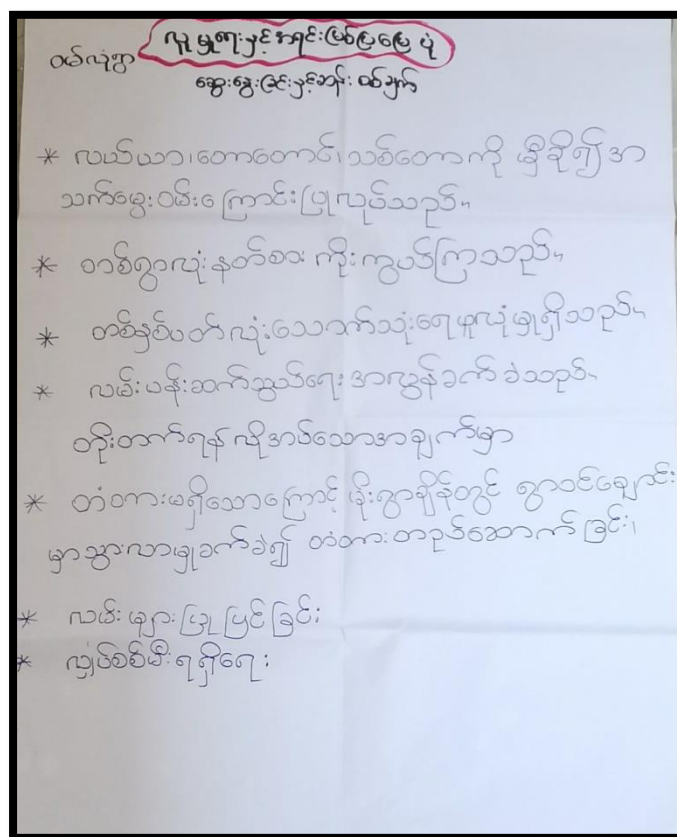 လူမှုရေးနှင့်အရင်းမြစ်ပြမြေပုံ
ဝမ်လုံရွာ
ဆွေးနွေးခြင်းနှင့်ဆန်းစစ်ချက်
* လယ်ယာ၊တောတောင်၊သစ်တောကို မှီခို၍ အ
သက်မွေးဝမ်းကြောင်းပြုလုပ်သည်။
* တစ်ရွာလုံး နတ်စား ကိုးကွယ်ကြသည်။
* တစ်နှစ်ပတ်လုံးသောက်သုံးရေဖူလုံမှုရှိသည်။
* လမ်းပန်းဆက်သွယ်ရေး အလွန်ခက်ခဲသည်။
တိုးတက်ရန် လိုအပ်သောအချက်မှာ
* တံတားမရှိသောကြောင့် မိုးရွာချိန်တွင် ရွာဝင်ချောင်း
မှာသွားလာမှုခက်ခဲ၍ တံတားတည်ဆောက်ခြင်း၊
* လမ်းများပြုပြင်ခြင်း
* လျှပ်စစ်မီးရရှိရေး